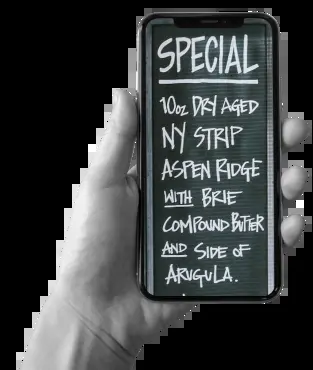 SPECIAL
10oz DRY AGED
NY STRIP
ASPEN RIDGE
WITH BRIE
COMPOUND BUTTER
AND SIDE OF
ARUGULA.